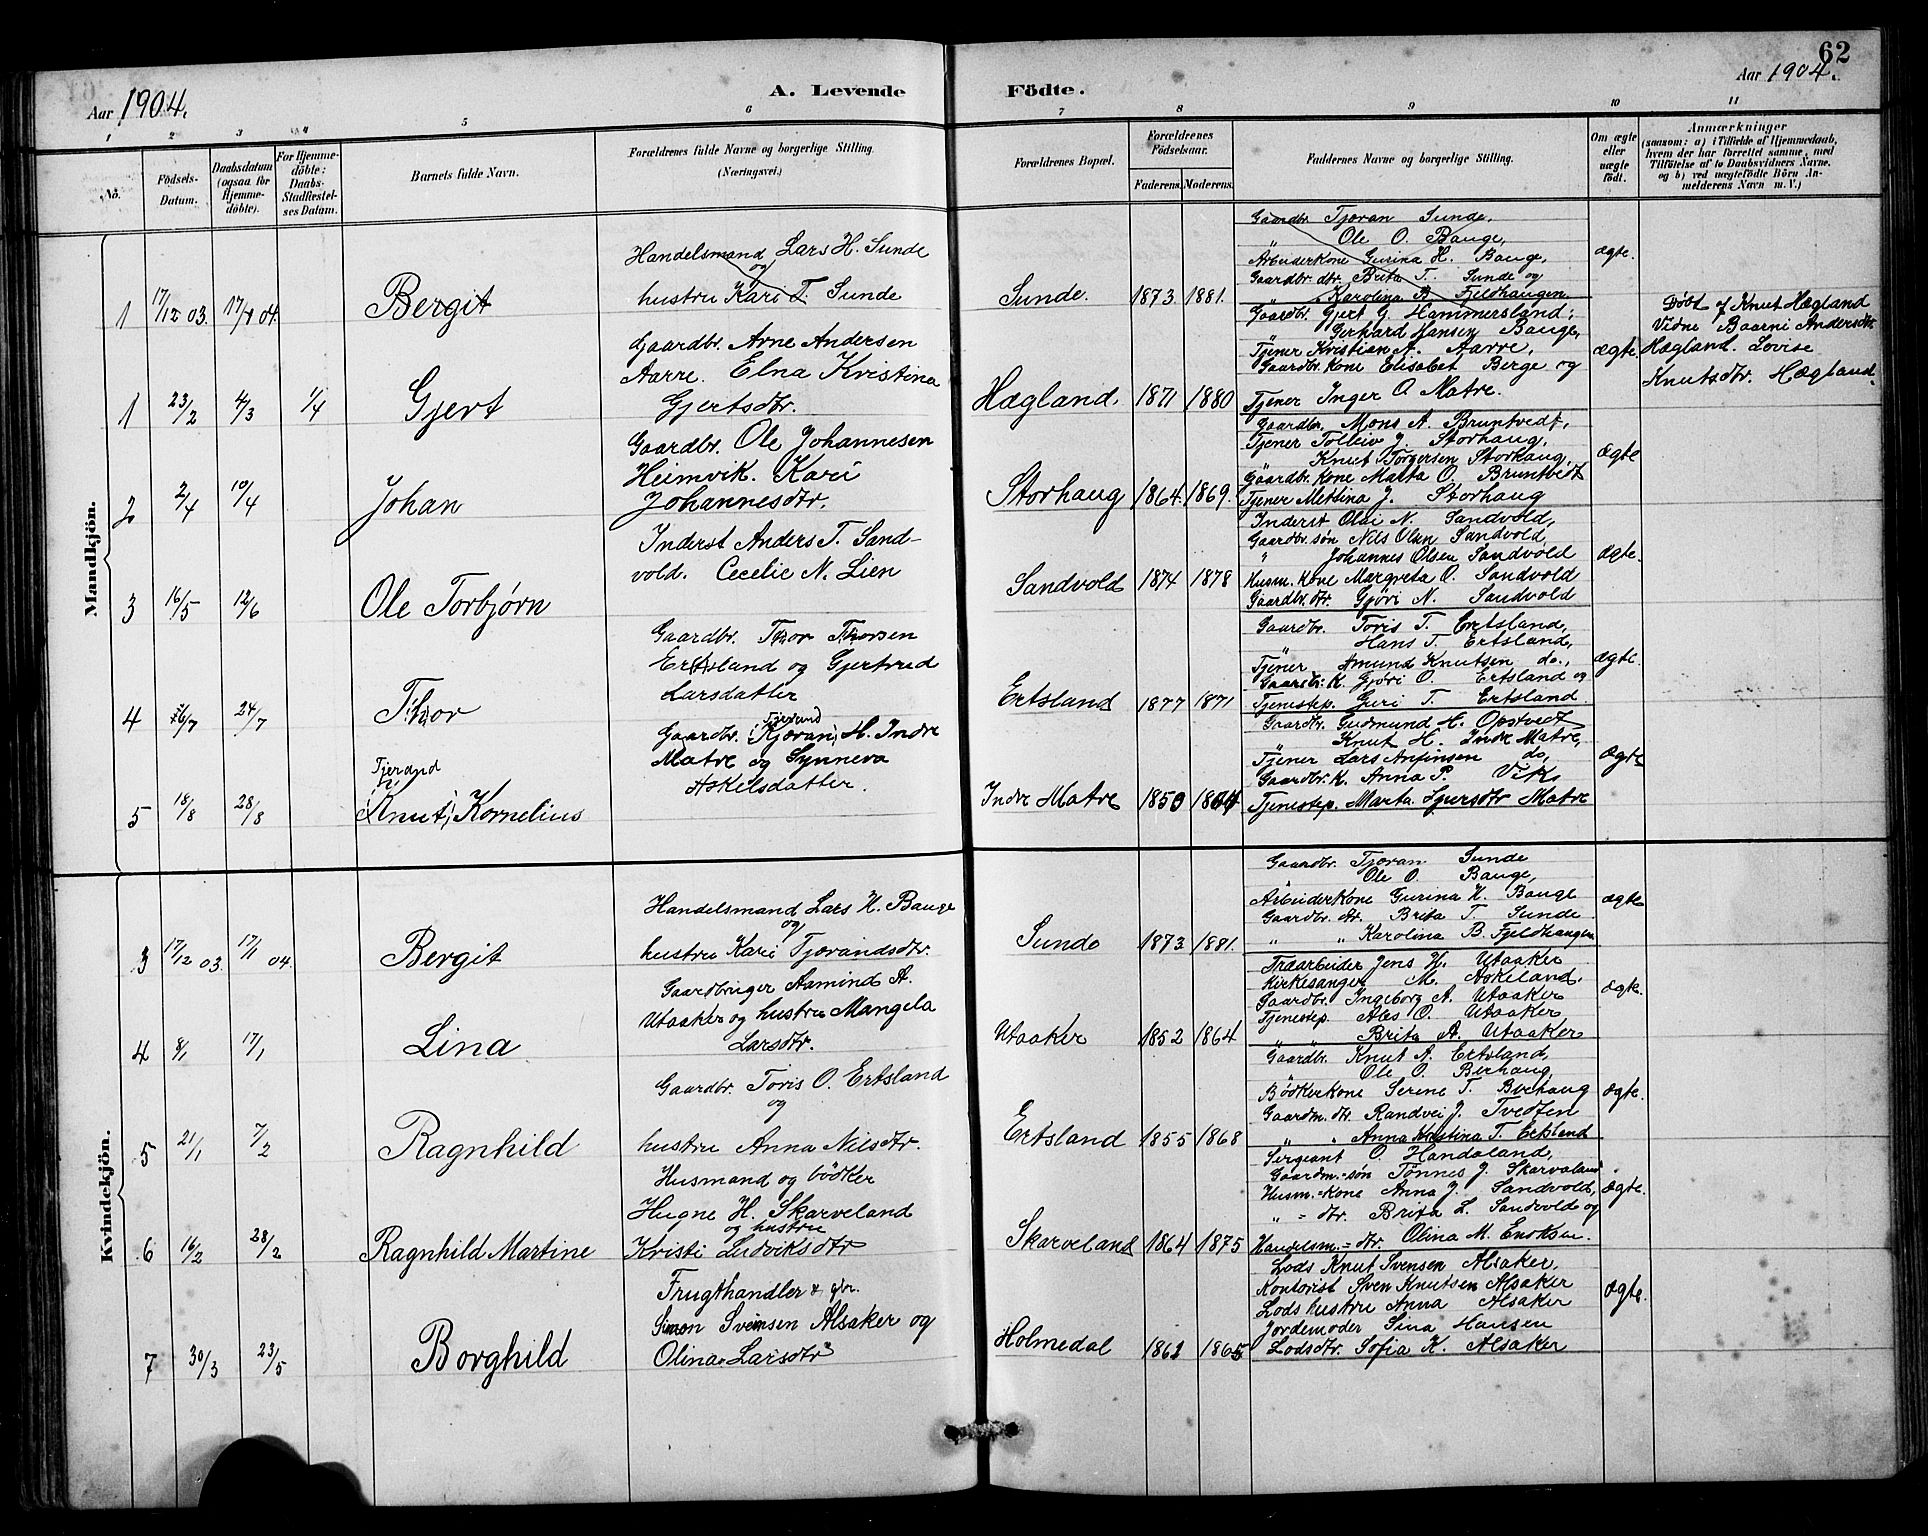 62
Aar 1904.
A. Levende
Födte.
Aar 1904.
1 2 3 4 5 6 7 8 9 10 11
No.
Födsels-
Datum.
Daabsdatum
(ogsaa for
Hjemme-
döbte).
For Hjemme-
döbte:
Daabs-
Stadfæstel-
ses Datum.
Barnets fulde Navn.
Forældrenes fulde Navne og borgerlige Stilling.
(Næringsvei.)
Forældrenes Bopæl.
Forældrenes
Födselsaar.
Faderens. Moderens.
Faddernes Navne og borgerlige Stilling.
Om ægte
eller
uægte
födt.
Anmærkninger
(saasom: a) i Tilfælde af Hjemmedaab,
hvem der har forrettet samme, med
Tilföielse af to Daabsvidners Navne,
og b) ved uægtefödte Börn An-
melderens Navn m. V.)
Mandkjön.
1 17/12 03. 17/1 04. Bergit
Handelsmand Lars H. Sunde
og
hustru Kari T. Sunde
Sunde. 1873 1881.
Gaardbr. Tjæran Sunde,
" Ole O. Bauge,
Arbeiderkone Gurina H. Bauge,
Gaardbr. dtr. Brita T. Sunde og
" Karolina B. Fjeldhaugen
ægte.
1 23/2 4/3 1/4 Gjert
Gaardbr. Arne Andersen
Aarre. Elna Kristina
Gjertsdtr.
Hægland. 1871 1880
Gaardbr. Gjert G. Hammersland,
" Gerhard Hansen Bauge,
Tjener Kristian A. Aarre,
Gaardbr. Kone Elisabet Berge og
Tjener Inger O. Matre.
ægte
Döbt af Knut Hægland
Vidne Baarni Andersdtr
Hægland. Lovise
Knutsdtr. Hægland.
2 2/4 10/4 Johan
Gaardbr. Ole Johannesen
Heimvik. Kari
Johannesdtr.
Storhaug 1864. 1869.
Gaardbr. Mons A. Bruntvedt,
Tjener Tolleiv J. Storhaug,
" Knut Torgersen Storhaug,
Gaardbr. Kone Marta O. Bruntvedt
Tjener Metlina J. Storhaug
ægte
3 16/5 12/6 Ole Torbjørn
Inderst Anders T. Sand-
vold. Cecelie N. Lien
Sandvold 1874 1878
Inderst Olai N. Sandvold,
Gaardbr. søn Nils Olsen Sandvold,
" Johannes Olsen Sandvold
Husm. Kone Margreta O. Sandvold
Gaardbr. dtr. Gjöri N. Sandvold
ægte.
4 16/7 24/7 T(h)or
Gaardbr. Thor Thorsen
Er(t)sland og Gjertrud
Larsdatter
Ertsland 1877 1871
Gaardbr. Toris T. Ertsland,
" Hans T. Ertsland,
Tjener Amund Knutsen do.,
Gaardbr. K. Gjöri O. Ertsland og
Tjenestep. Guri T. Ertsland
ægte.
Tjerand
5 18/8 28/8 (Knut) Kornelius
Tjerand
Gaardbr. (Kjæran) H. Indre
Matre og Synneva
Askelsdatter.
Indre Matre 1850
Gaardbr. Gudmund H. Opstvedt
" Knut H. Indre Matre,
Tjener Lars Anfinsen do,
Gaardbr. K. Anna P. Vik,
Tjenestep. Marta Sjursdtr Matre
Ægte
Kvindekjön.
3 17/12 03. 17/1 04. Bergit
Handelsmand Lars H. Bauge
og
hustru Kari Tjærandsdtr.
Sunde 1873 1881.
Gaardbr. Tjæran Sunde
" Ole O. Bauge,
Arbeiderkone Gurina H. Bauge
Gaardbr. dtr. Brita T. Sunde
" " Karolina B. Fjeldhaugen
ægte
4 8/1 17/1 Lina
Gaardbruger Aamind A.
Utaaker og hustru Mangela
Larsdtr.
Utaaker 1852 1864
Træarbeider Jens H. Utaaker
Kirkesanger M. Askeland,
Gaardbr. Ingeborg A. Utaaker,
Tjenestep. Ales O. Utaaker,
" Brita A. Utaaker
ægte.
5 21/1 7/2 Ragnhild
Gaardbr. Toris O. Ertsland
og
hustru Anna Nilsdtr.
Ertsland 1855 1868
Gaardbr. Knut A. Ertsland,
" Ole O. Berhaug,
Bödkerkone Serene T. Berhaug
Gaardm. dtr. Randvei J. Tvedten
" " Anna Kristina T. Ertsland
ægte.
6 16/2 28/2 Ragnhild Martine
Husmand og bödker
Hugne H. Skarveland
og hustru
Kristi Ludviksdtr
Skarveland 1864 1875
Sergeant O. Handeland,
Gaardm.=søn Tönnes J. Skarveland
Husm.=Kone Anna J. Sandvold,
" = dtr. Brita L. Sandvold og
Handelsm.=dtr. Olina M. Enoksen
ægte.
7 30/3 23/5 Borghild
Frugthandler
Simon Svensen Alsaker og
Olina Larsdtr
Holmedal 1862 1865
Lods Knut Svensen Alsaker,
Kontorist Sven Knutsen Alsaker
Lods hustru Anna Alsaker
Jordemoder Sina Hansen
Lodsdtr. Sofia K. Alsaker
ægte.